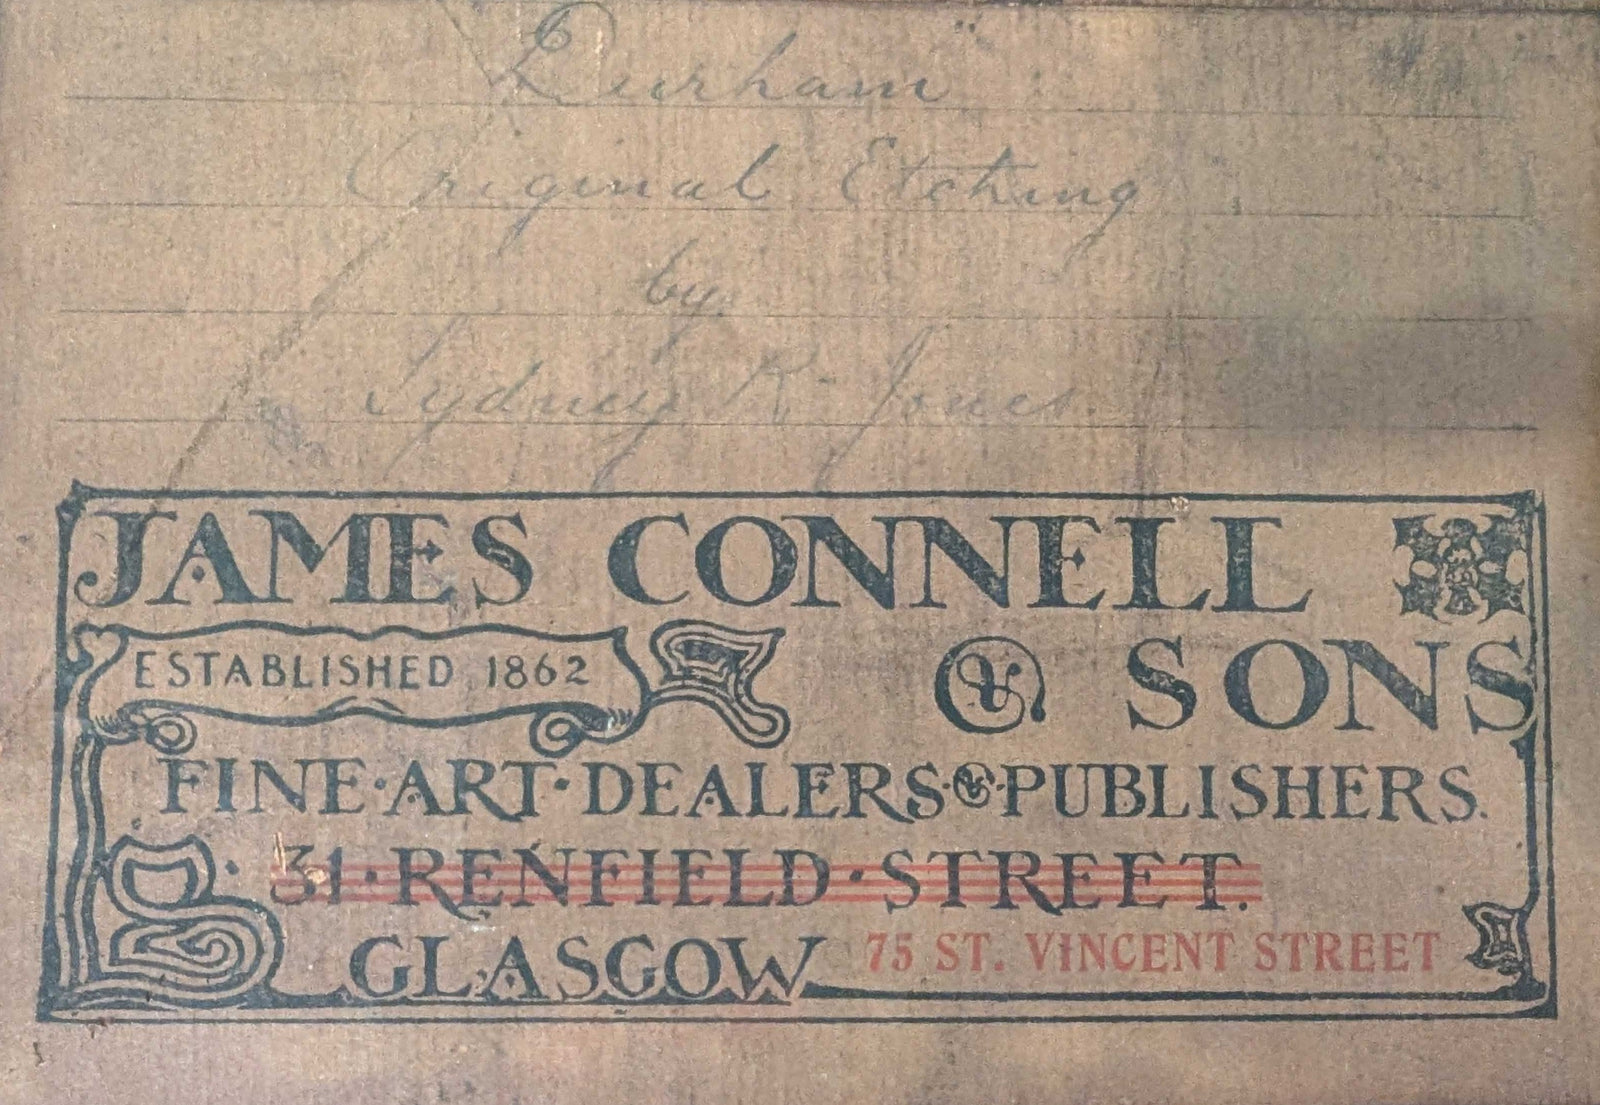 Durham
Original Etching
by
Sydney R. Jones
JAMES CONNELL
ESTABLISHED 1862
& SONS
FINE·ART·DEALERS·&·PUBLISHERS.
31·RENFIELD·STREET.
GLASGOW 75 ST. VINCENT STREET